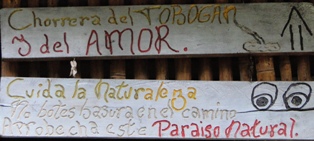 Chorrera del TOBOGAN
y del AMOR.
Cuida la Naturaleza
No botes basura en el camino
Aprobecha este Paraiso Natural.